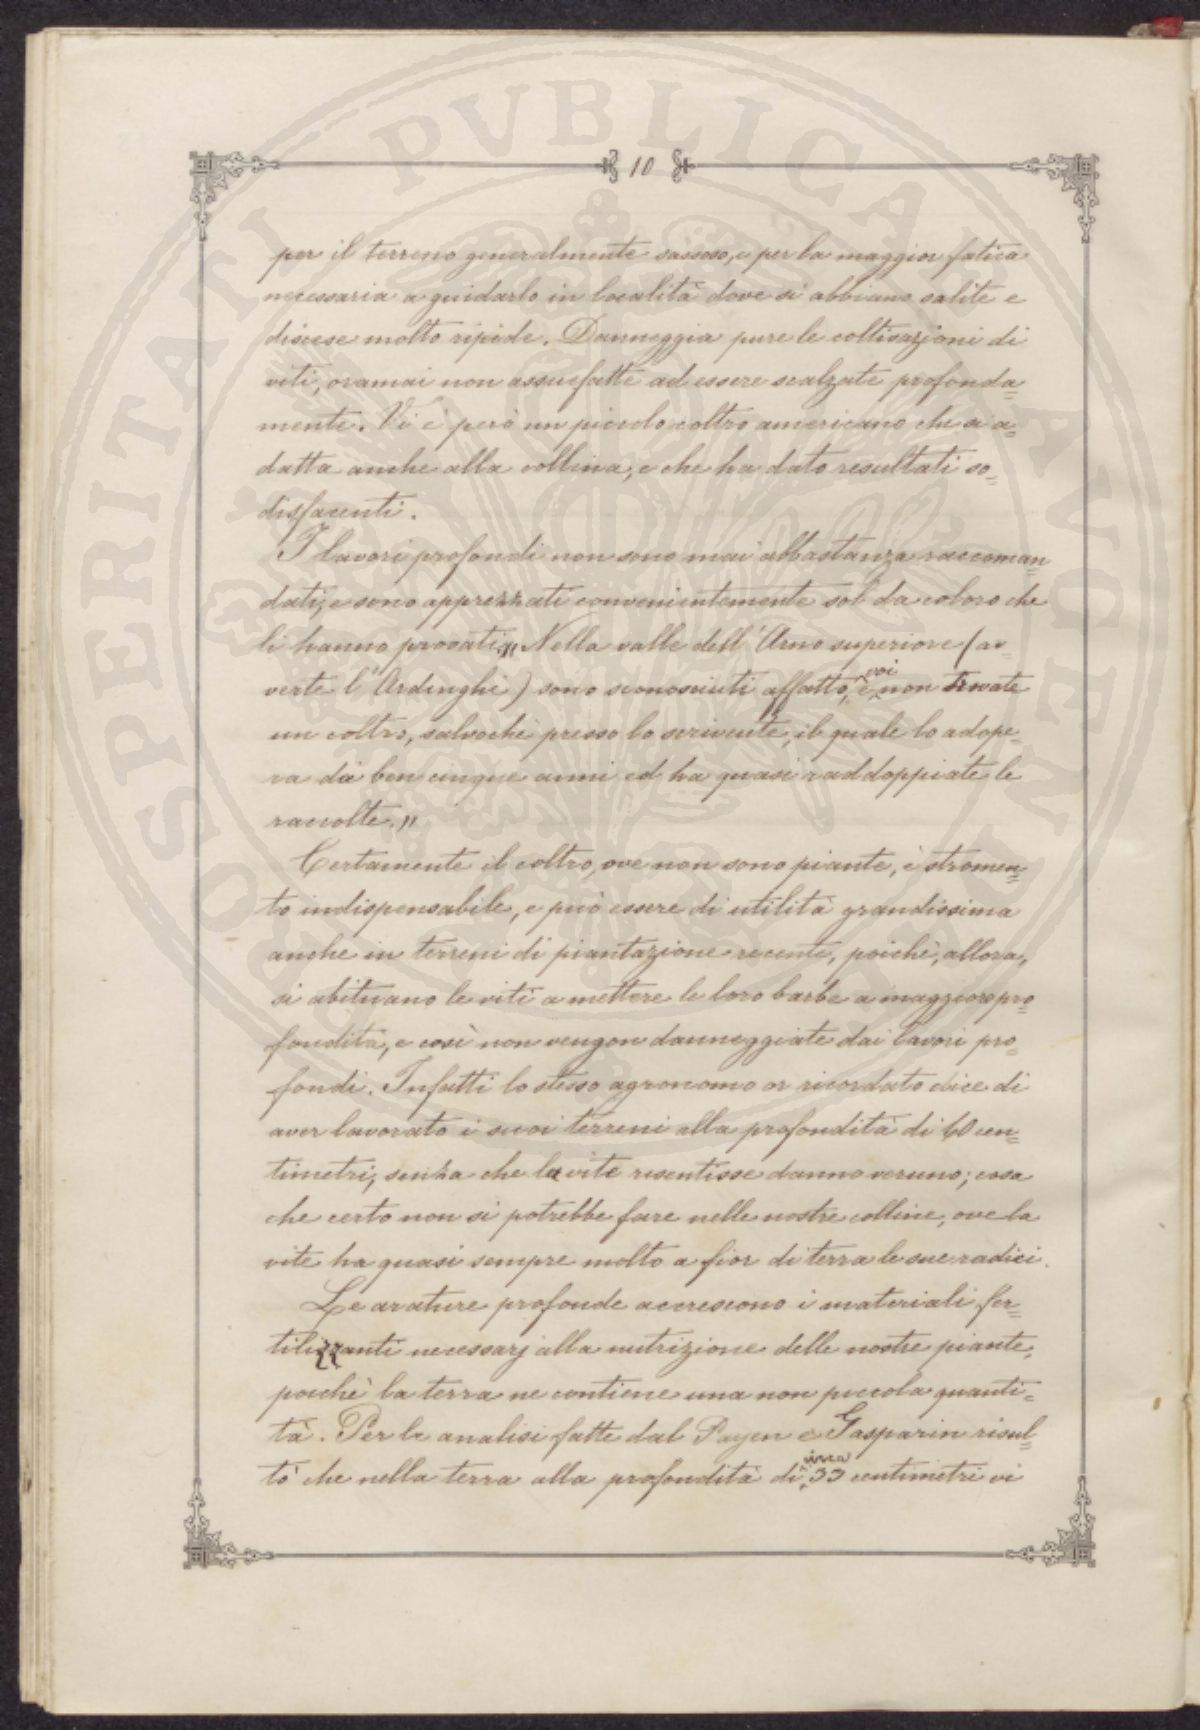 PROSPERITATI PUBLICAE AUGENDAE
10
per il terreno generalmente sassoso, e per la maggior fatica
necessaria a guidarlo in località dove si abbiano salite e
discese molto ripide. Danneggia pure le coltivazioni di
viti, oramai non assuefatte ad essere scalzate profonda=
mente. Vi è però un piccolo coltro americano che si a=
datta anche alla collina, e che ha dato resultati so=
disfacenti.
I lavori profondi non sono mai abbastanza raccoman=
dati, e sono apprezzati convenientemente sol da coloro che
li hanno provati. "Nella valle dell'Arno superiore (av=
verte l'Ardinghi) sono sconosciuti affatto, e voi non trovate
un coltro, salvochè presso lo scrivente, il quale lo adope=
ra da ben cinque anni ed ha quasi raddoppiate le
raccolte."
Certamente il coltro, ove non sono piante, è stromen=
to indispensabile, e può essere di utilità grandissima
anche in terreni di piantazione recente, poichè, allora,
si abituano le viti a mettere le loro barbe a maggiore pro=
fondità, e così non vengon danneggiate dai lavori pro=
fondi. Infatti lo stesso agronomo or ricordato dice di
aver lavorato i suoi terreni alla profondità di 60 cen=
timetri, senza che la vite risentisse danno veruno; cosa
che certo non si potrebbe fare nelle nostre colline, ove la
vite ha quasi sempre molto a fior di terra le sue radici.
Le arature profonde accrescono i materiali fer=
tilizzanti necessarj alla nutrizione delle nostre piante,
poichè la terra ne contiene una non piccola quanti=
tà. Per le analisi fatte dal Payen e Gasparin risul=
tò che nella terra alla profondità di circa 33 centimetri vi